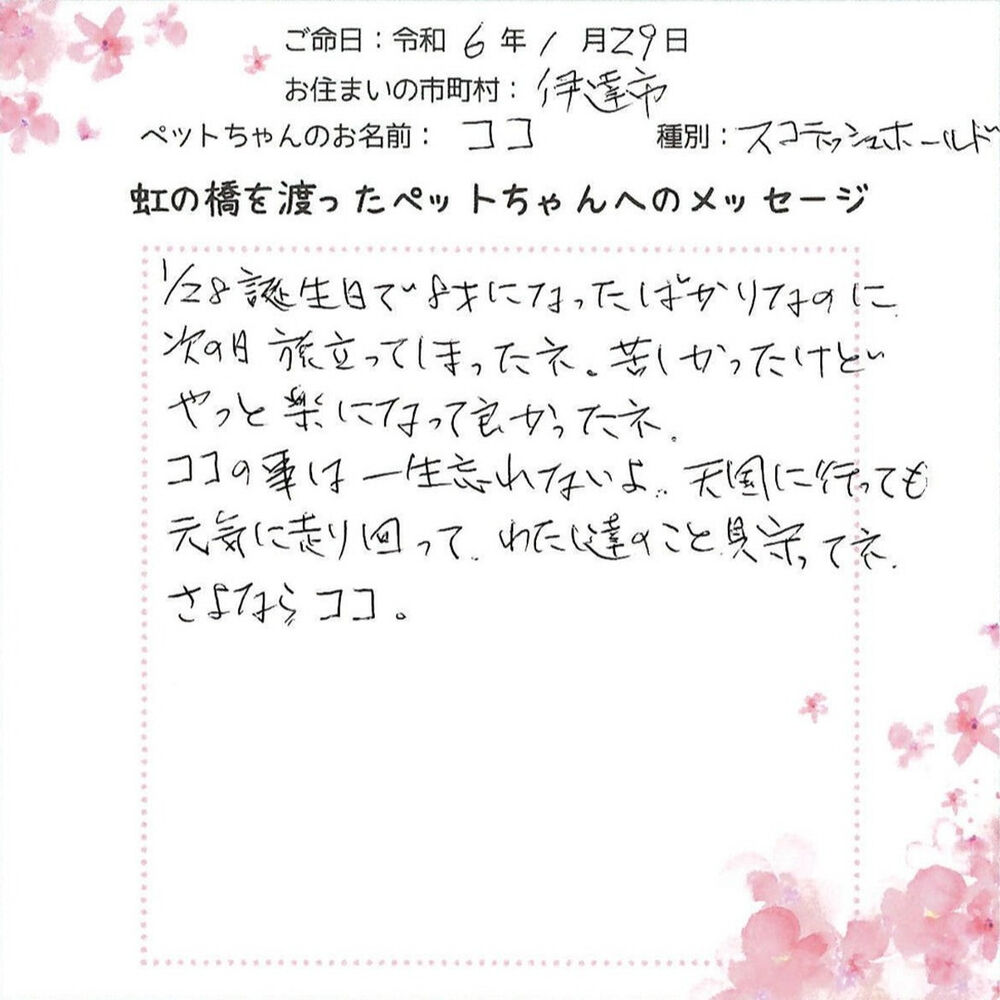 ご命日：令和 6 年 1 月29日
お住まいの市町村：伊達市
ペットちゃんのお名前：ココ 種別：スコティッシュホールド
虹の橋を渡ったペットちゃんへのメッセージ
1/28誕生日で8才になったばかりなのに
次の日旅立ってしまったネ。苦しかったけど
やっと楽になって良かったネ。
ココの事は一生忘れないよ。天国に行っても
元気に走り回って、わたし達のこと見守ってネ。
さよならココ。